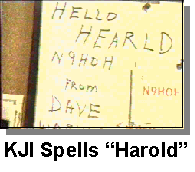 HELLO
HEARLD
N9HOH
FROM
DAVE
N9HOH
KJI Spells “Harold”